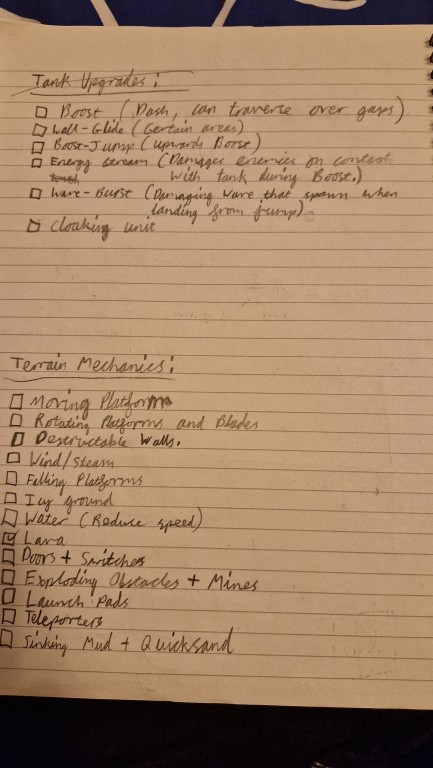 Tank Upgrades:
Boost (Dash, can traverse over gaps)
Wall-Glide (Certain areas)
Boost-Jump (Upwards Boost)
Energy scream (Damages enemies on contact
with tank during Boost.)
Wave-Burst (Damaging wave that spawns when
landing from jump)
Cloaking unit
Terrain Mechanics:
Moving Platforms
Rotating Platforms and Blades
Destructable Walls.
Wind/Steam
Falling Platforms
Icy ground
Water (Reduce speed)
Lava
Doors + Switches
Exploding Obstacles + Mines
Launch Pads
Teleporters
Sinking Mud + Quicksand